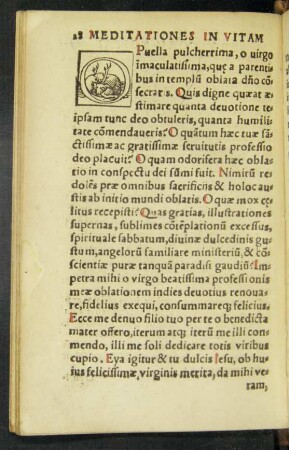 28 MEDITATIONES IN VITAM
O Puella pulcherrima, o virgo
imaculatissima, quę a parenti
bus in templū oblata dño cō
secratis. Quis digne quæat æ
stimare quanta deuotione te
ipsam tunc deo obtuleris, quanta humili
tate cōmendaueris? O quātum hæc tuæ sā
ctissimæ ac gratissimæ seruitutis professio
deo placuit? O quam odorifera hæc obla
tio in conspectu dei sūmi fuit. Nimirū re
dolēs præ omnibus sacrificijs & holocau
stis ab initio mundi oblatis. O quæ mox cę
litus recepisti? Quas gratias, illustrationes
supernas, sublimes cōtēplationū excessus,
spirituale sabbatum, diuinæ dulcedinis gu
stum, angelorū familiare ministeriū, & cō
scientiæ puræ tanquā paradisi gaudiū? Im
petra mihi o virgo beatissima professionis
meæ oblationem indies deuotius renoua
re, fidelius exequi, consummareq; felicius.
Ecce me denuo filio tuo per te o benedicta
mater offero, iterum atq; iterū me illi con
mendo, illi me soli dedicare totis viribus
cupio. Eya igitur & tu dulcis Iesu, ob hu
ius felicissimæ virginis merita, da mihi ve
ram,